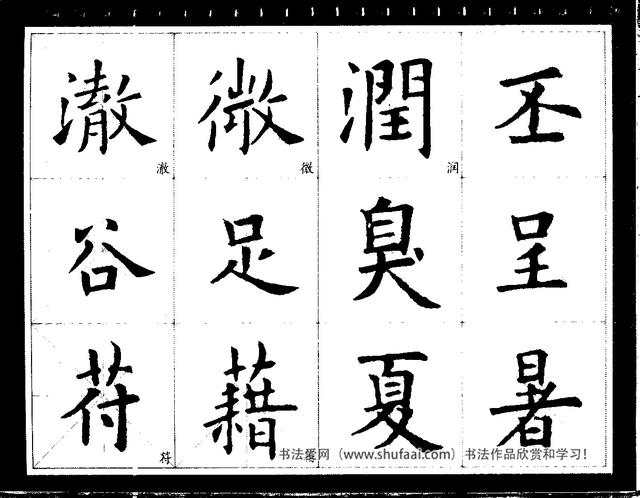 澈 微 潤 丕
澈 微 润
谷 足 臭 呈
苻 藉 夏 暑
符
书法爱网（www.shufaai.com）书法作品欣赏和学习！